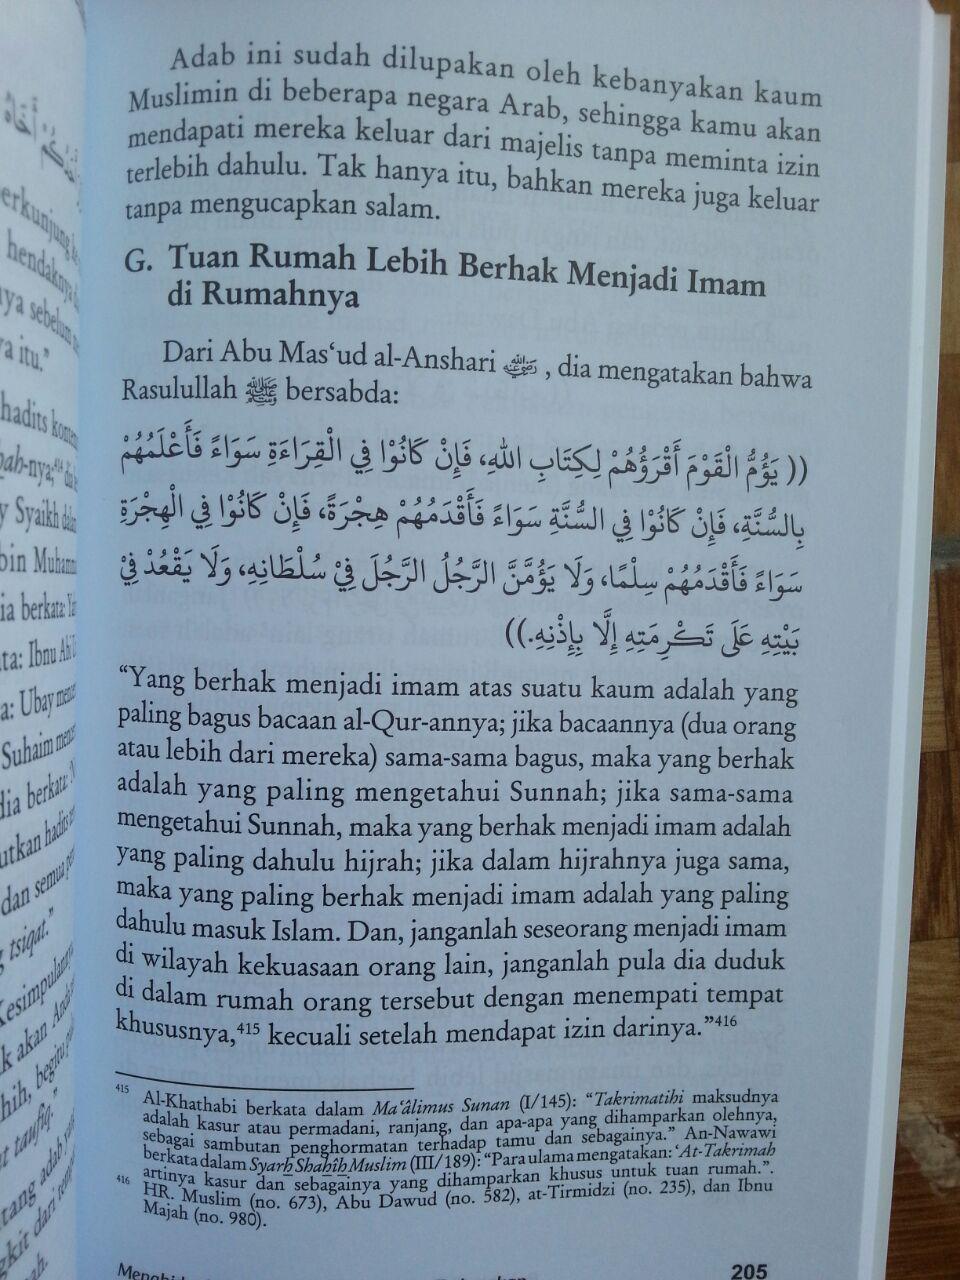 Adab ini sudah dilupakan oleh kebanyakan kaum
Muslimin di beberapa negara Arab, sehingga kamu akan
mendapati mereka keluar dari majelis tanpa meminta izin
terlebih dahulu. Tak hanya itu, bahkan mereka juga keluar
tanpa mengucapkan salam.
G. Tuan Rumah Lebih Berhak Menjadi Imam
di Rumahnya
Dari Abu Mas‘ud al-Anshari ﷁ, dia mengatakan bahwa
Rasulullah ﷺ bersabda:
(( يَؤُمُّ الْقَوْمَ أَقْرَؤُهُمْ لِكِتَابِ اللهِ، فَإِنْ كَانُوْا فِي الْقِرَاءَةِ سَوَاءً فَأَعْلَمُهُمْ
بِالسُّنَّةِ، فَإِنْ كَانُوْا فِي السُّنَّةِ سَوَاءً فَأَقْدَمُهُمْ هِجْرَةً، فَإِنْ كَانُوْا فِي الْهِجْرَةِ
سَوَاءً فَأَقْدَمُهُمْ سِلْمًا، وَلَا يَؤُمَّنَّ الرَّجُلُ الرَّجُلَ فِيْ سُلْطَانِهِ، وَلَا يَقْعُدْ فِيْ
بَيْتِهِ عَلَى تَكْرِمَتِهِ إِلَّا بِإِذْنِهِ.))
“Yang berhak menjadi imam atas suatu kaum adalah yang
paling bagus bacaan al-Qur-annya; jika bacaannya (dua orang
atau lebih dari mereka) sama-sama bagus, maka yang berhak
adalah yang paling mengetahui Sunnah; jika sama-sama
mengetahui Sunnah, maka yang berhak menjadi imam adalah
yang paling dahulu hijrah; jika dalam hijrahnya juga sama,
maka yang paling berhak menjadi imam adalah yang paling
dahulu masuk Islam. Dan, janganlah seseorang menjadi imam
di wilayah kekuasaan orang lain, janganlah pula dia duduk
di dalam rumah orang tersebut dengan menempati tempat
khususnya,⁴¹⁵ kecuali setelah mendapat izin darinya.”⁴¹⁶
⁴¹⁵ Al-Khathabi berkata dalam Ma‘âlimus Sunan (I/145): “Takrimatihi maksudnya
adalah kasur atau permadani, ranjang, dan apa-apa yang dihamparkan olehnya,
sebagai sambutan penghormatan terhadap tamu dan sebagainya.” An-Nawawi
berkata dalam Syarh Shahîh Muslim (III/189): “Para ulama mengatakan: ‘At-Takrimah
artinya kasur dan sebagainya yang dihamparkan khusus untuk tuan rumah.”.
⁴¹⁶ HR. Muslim (no. 673), Abu Dawud (no. 582), at-Tirmidzi (no. 235), dan Ibnu
Majah (no. 980).
205